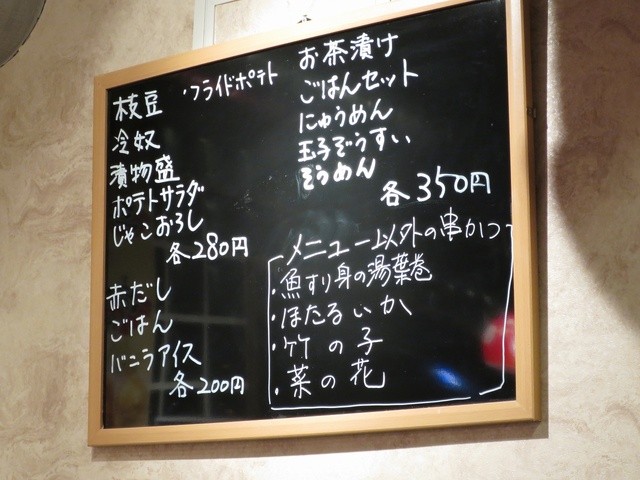 枝豆 ・フライドポテト
冷奴
漬物盛
ポテトサラダ
じゃこおろし
各280円
赤だし
ごはん
バニラアイス
各200円
お茶漬け
ごはんセット
にゅうめん
玉子ぞうすい
そうめん
各350円
メニュー以外の串かつ
・魚すり身の湯葉巻
・ほたるいか
・竹の子
・菜の花